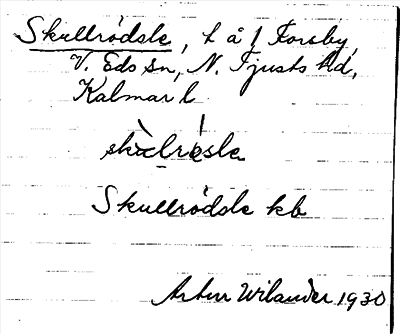 Skullrödsle, t å f Forsby,
V. Eds sn, N. Tjusts hd,
Kalmar l
Skullrödsle kb
Artur Wilander 1930